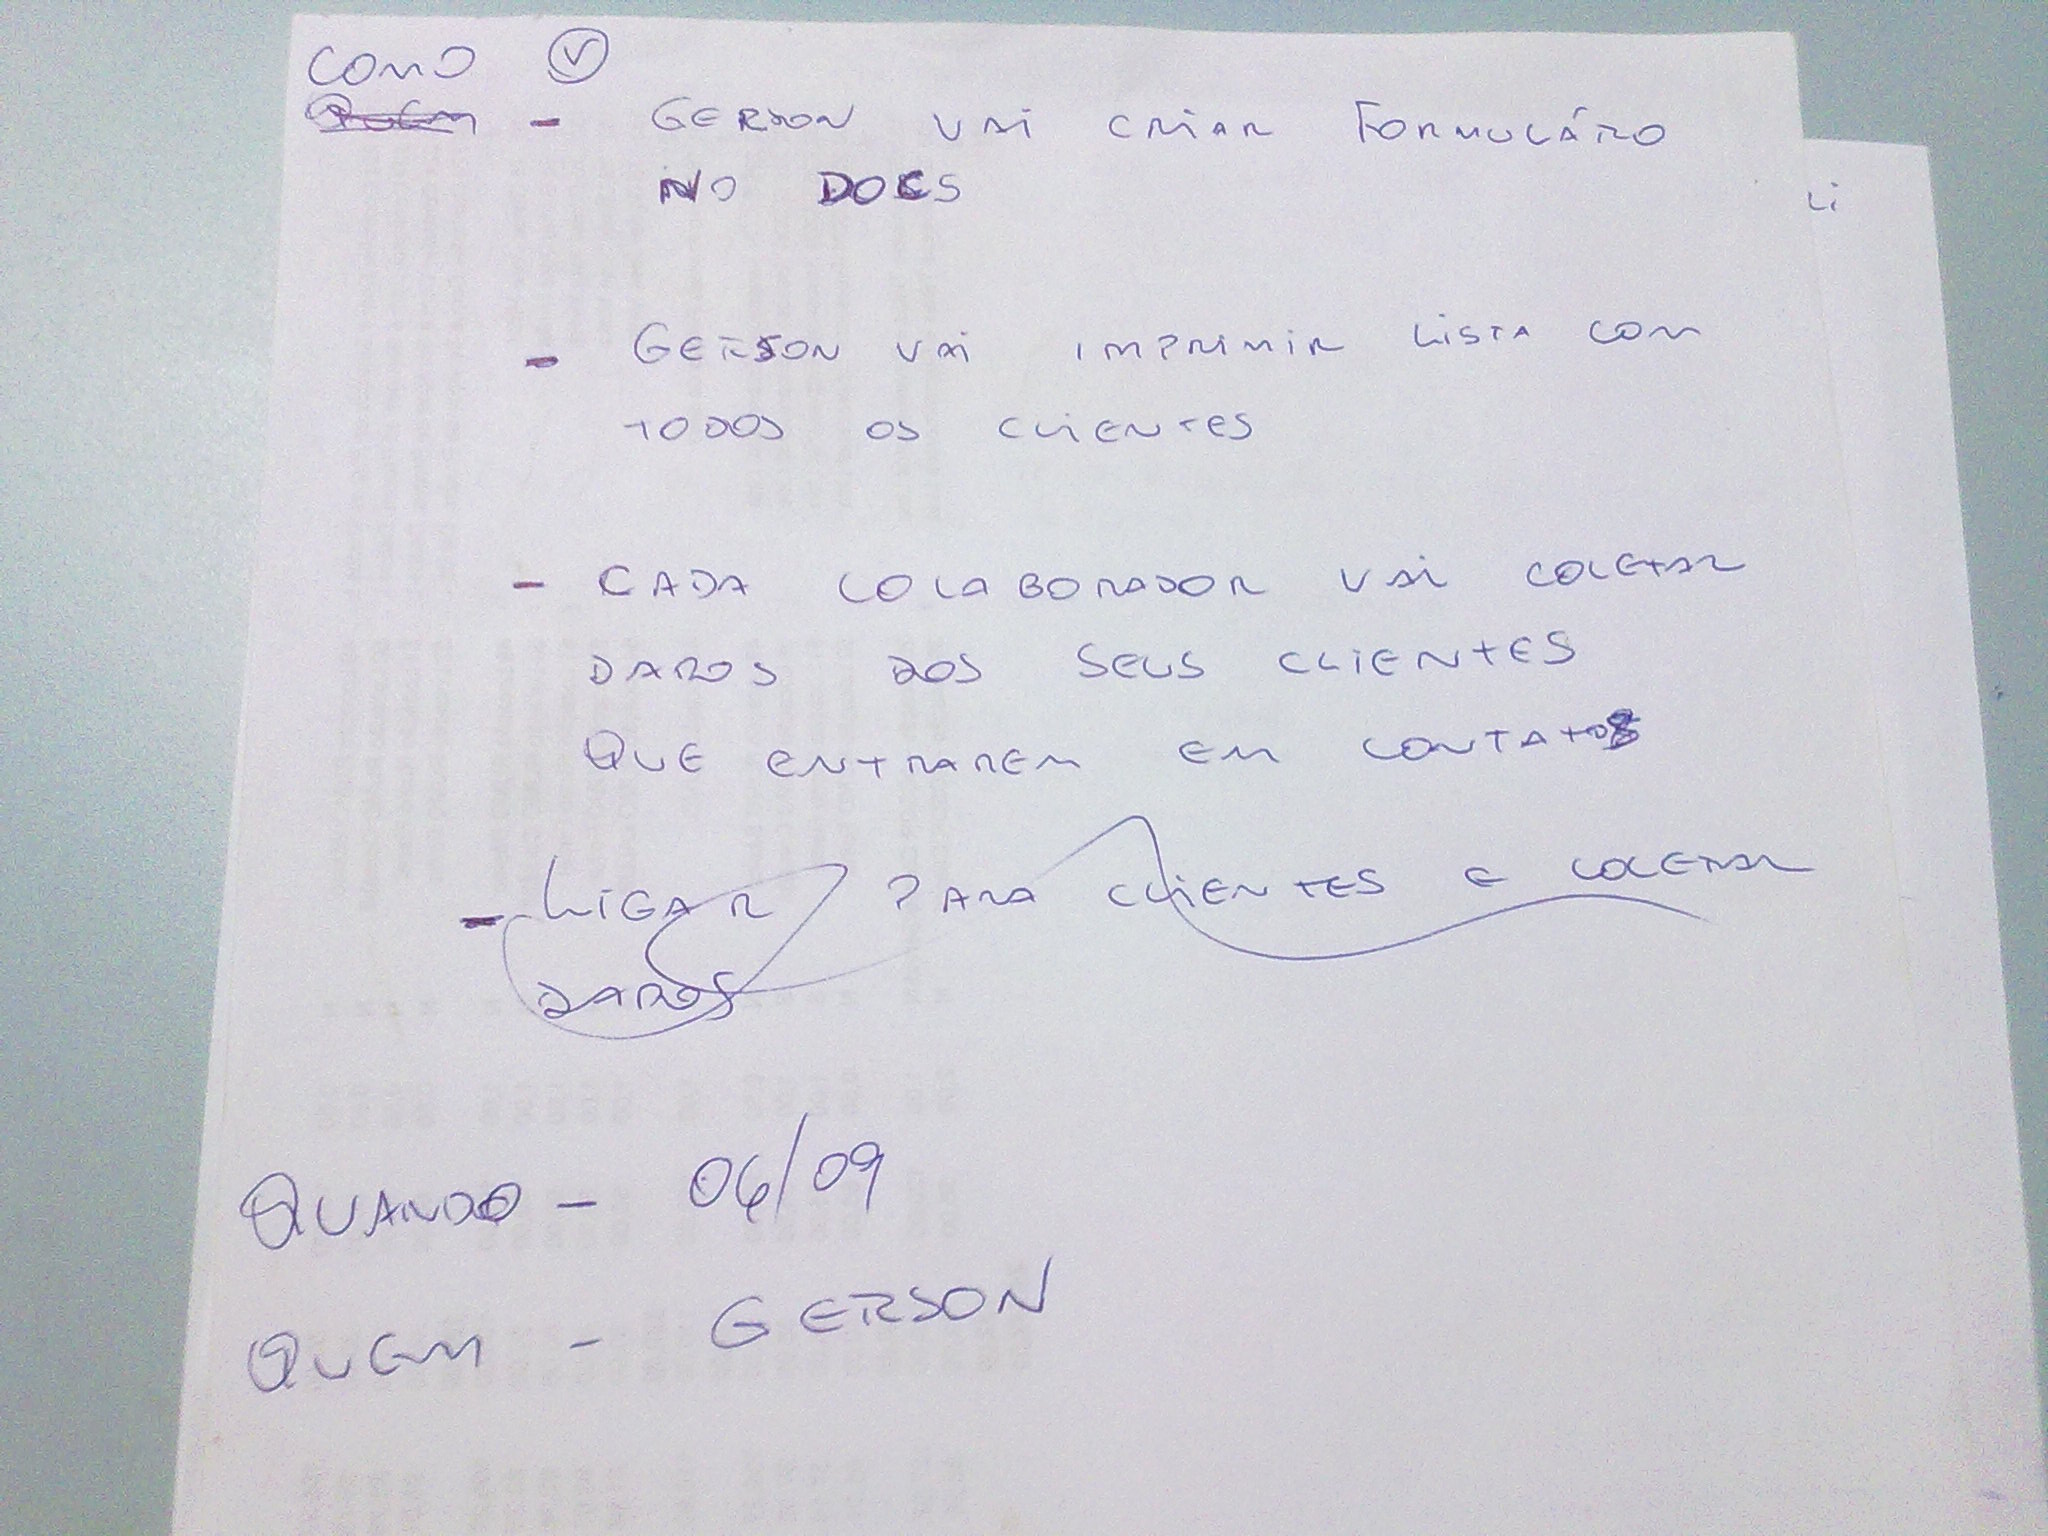 COMO V
QUEM - GERSON VAI CRIAR FORMULÁRO
NO DOCS
Li
- GERSON VAI IMPRIMIR LISTA COM
TODOS OS CLIENTES
- CADA COLABORADOR VAI COLETAR
DADOS DOS SEUS CLIENTES
QUE ENTRAREM EM CONTATO
- LIGAR PARA CLIENTES E COLETAR
DADOS
QUANDO - 06/09
QUEM - GERSON